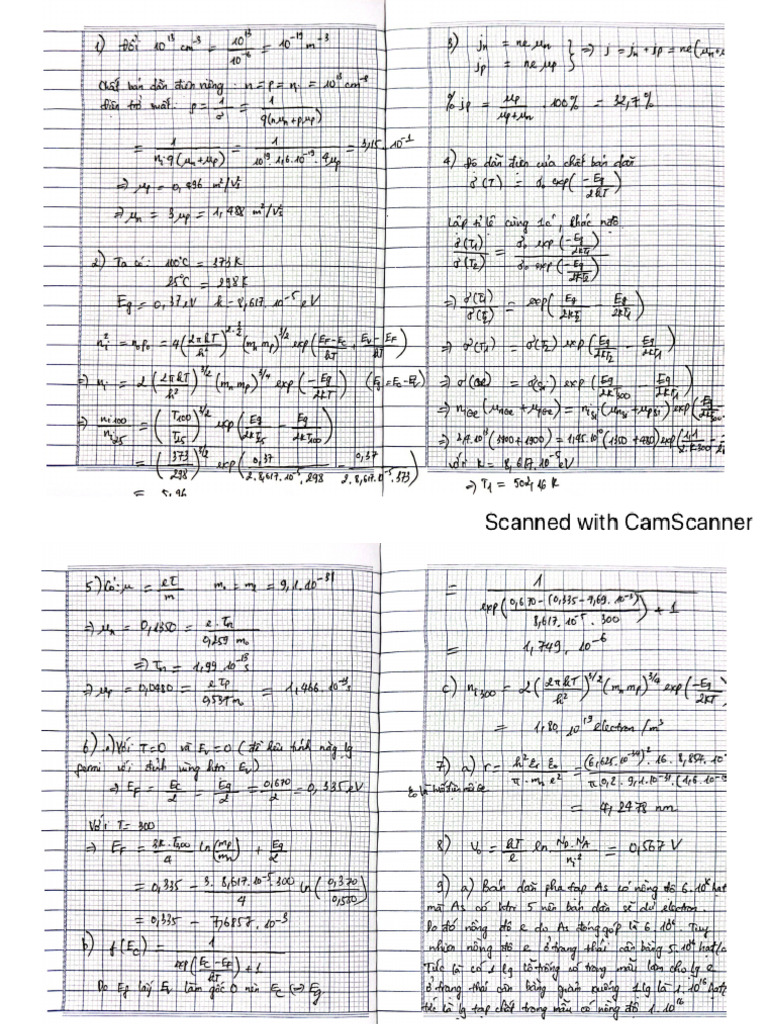 1) Đổi 10^13 cm^-3 = 10^13 / 10^-6 = 10^-19 m^-3
Chất bán dẫn điện riêng: n = p = n_i = 10^13 cm^-3
điện trở suất: ρ = 1/σ = 1 / q(nμn + pμp)
= 1 / n_i q(μn + μp) = 1 / 10^19 . 1,6.10^-19 . 4μp = 3,15.10^-1
=> μp = 0,496 m²/Vs
=> μn = 3μp = 1,488 m²/Vs
2) Ta có: 100°C = 373K
25°C = 298K
Eg = 0,37eV k = 8,617.10^-5 eV
n_i² = n_o p_o = 4(2πkT/h²)^2.3/2 (m_n m_p)^3/2 exp(EF-Ec/kT + Ev-EF/kT)
=> n_i = 2(2πkT/h²)^3/2 (m_n m_p)^3/4 exp(-Eg/2kT) (Eg = Ec - Ev)
=> n_i100/n_i25 = (T100/T25)^3/2 exp(Eg/2kT25 - Eg/2kT100)
= (373/298)^3/2 exp(0,37/2.8,617.10^-5.298 - 0,37/2.8,617.10^-5.373)
= 5,96
3) jn = neμn
jp = neμp } => j = jn + jp = ne(μn+μ
% jp = μp/μp+μn . 100% = 32,7%
4) Độ dẫn điện của chất bán dẫn
σ(T) = σo exp(-Eg/2kT)
Lập tỉ lệ cùng 1σ, khác nđộ
σ(T1)/σ(T2) = σo exp(-Eg/2kT1) / σo exp(-Eg/2kT2)
=> σ(T1)/σ(T2) = exp(Eg/2kT2 - Eg/2kT1)
=> σ(T1) = σ(T2) exp(Eg/2kT2 - Eg/2kT1)
=> σ(Ge) = σ(Si) exp(Eg/2kT300 - Eg/2kT1)
=> n_iGe(μnGe + μpGe) = n_iSi(μnSi + μpSi) exp(Eg/2kT300
=> 2,4.10^13(3900+1900) = 1,45.10^10(1350+480) exp(1,1/2.k.300 -
với k = 8,617.10^-5 eV
=> T1 = 502,16 K
Scanned with CamScanner
5) Có: μ = eτ/m mo = me = 9,1.10^-31
=> μn = 0,1350 = e.τn / 0,259 mo
=> τn = 1,99.10^-13 s
=> μp = 0,0480 = eτp / 0,537mo = 1,466.10^-13 s
6) a) Với T=0 và Ev = 0
=> EF = Ec/2 = Eg/2 = 0,670/2 = 0,335 eV
Với T = 300
=> EF = 3k.T300/4 ln(mp/mn) + Eg/2
= 0,335 - 3.8,617.10^-5.300/4 ln(0,370/0,550)
= 0,335 - 7,6857.10^-3
b) f(Ec) = 1 / exp(Ec-EF/kT)+1
Do Eg lấy Ev làm gốc 0 nên Ec <=> Eg
= 1 / exp(0,670-(0,335-7,69.10^-3)/8,617.10^-5.300) + 1
= 1,749.10^-6
c) n_i300 = 2(2πkT/h²)^3/2 (m_n m_p)^3/4 exp(-Eg/2kT
= 1,80.10^19 electron/m³
7) a) r = h² εr εo / π.mn e² = (6,625.10^-34)².16.8,854.10 / π.0,2.9,1.10^-31.(1,6.10^-19
= 4,2478 nm
8) Vo = kT/e ln ND.NA/n_i² = 0,567 V
9) a) Bán dẫn pha tạp As có nồng độ 6.10^16 hạt
mà As có htrị 5 nên bán dẫn sẽ dư electron.
Do đó nồng độ e do As đóng góp là 6.10^16. Tuy
nhiên nồng độ e ở trạng thái cân bằng 5.10^16 hạt/c
Tức là có 1 lg lỗ trống có trong mẫu làm cho lg e
ở trạng thái cân bằng giảm xuống 1 lg là 1.10^16 hạt/
tức là lg tạp chất trong mẫu có nồng độ 1.10^16